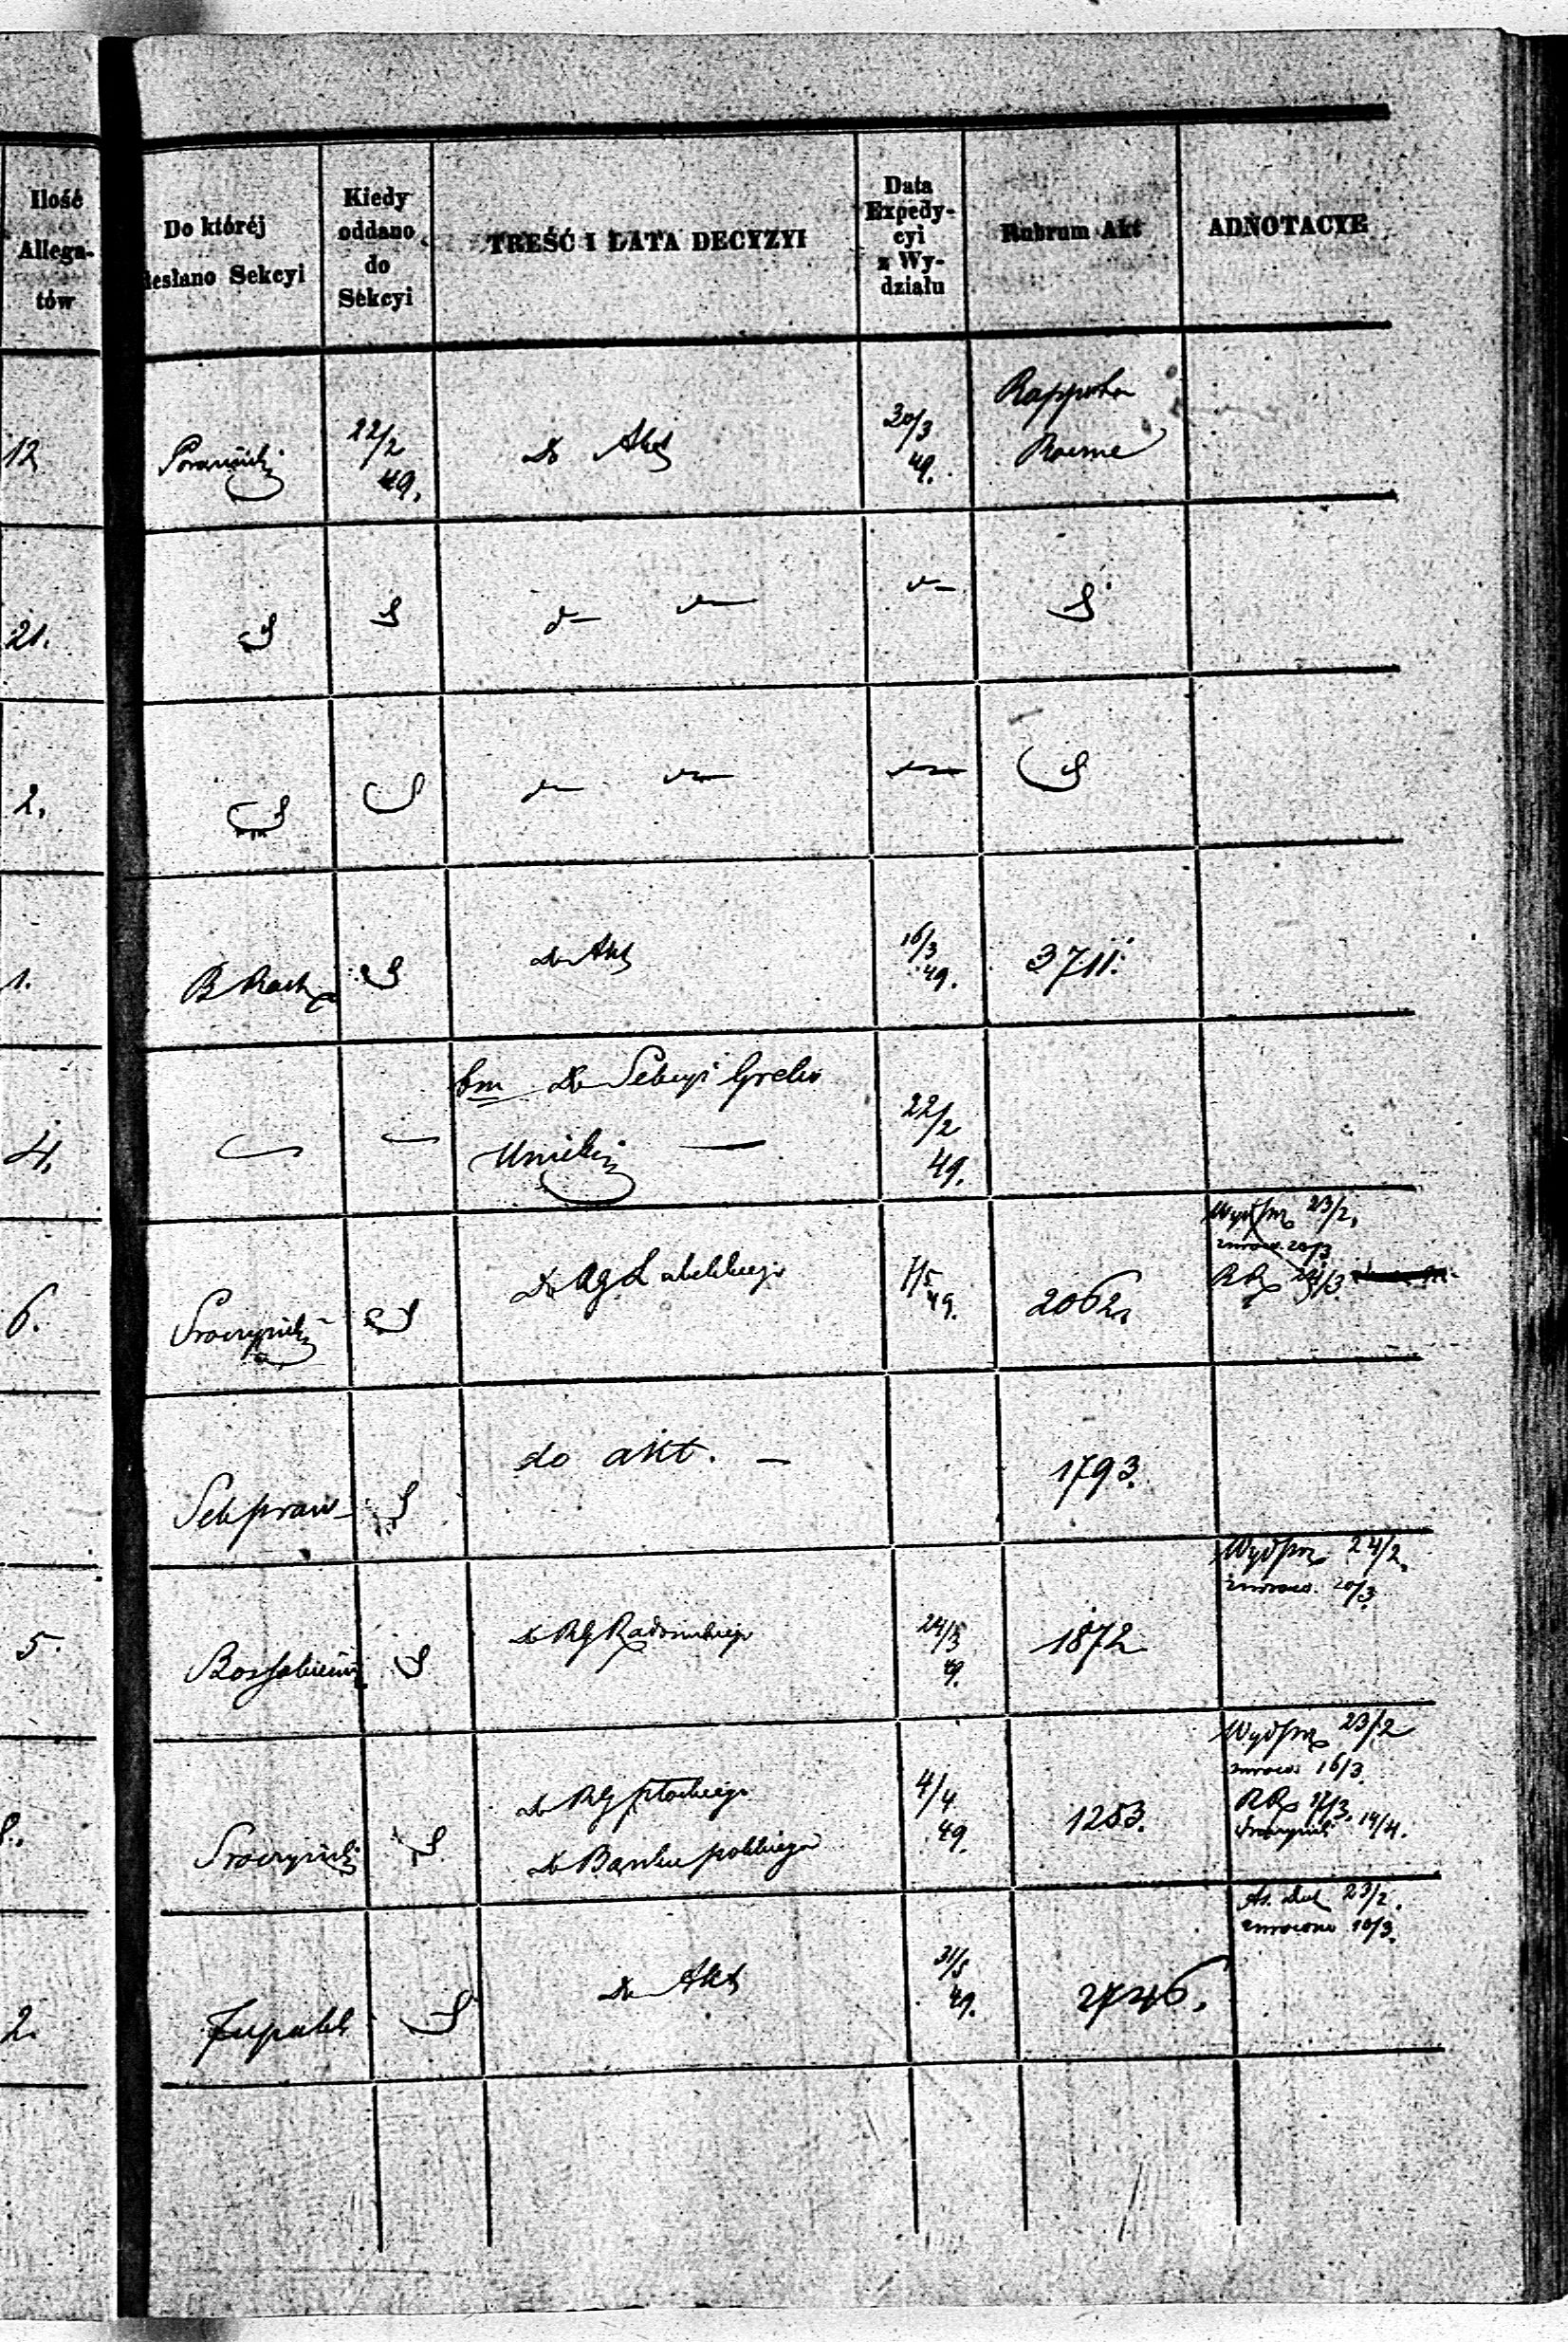 Ilość
Allega-
tów
Do któréj
esłano Sekcyi
Kiedy
oddano
do
Sekcyi
TREŚĆ I DATA DECYZYI
Data
Expedy-
cyi
z Wy-
działu
Rubrum Akt
ADNOTACYE
12
22/2
49.
Do Akt
20/3
49.
Rapporta
Roczne
21.
2.
1.
B Rach
do Akt
16/3
49.
3711.
4.
bm Do Sekcyi
22/2
49.
6.
Sroczyński
Do RG Lubelskiego
1/5
49.
2062.
Wyd pr 23/2.
zwroco. 20/3
RR 24/3.
Sek praw
do akt. —
1793.
5.
Do RG Radomskiego
24/3
49.
1872
Wyd pr 24/2.
zwroco. 20/3.
8.
Sroczyński
do RG Płockiego
Do Banku polskiego
4/4
49.
1253.
Wyd pr 23/2
zwroco 16/3.
RR 17/3.
Sroczyński 14/4.
2.
Do Akt
31/5
49.
2746.
23/2.
zwrocono 10/3.